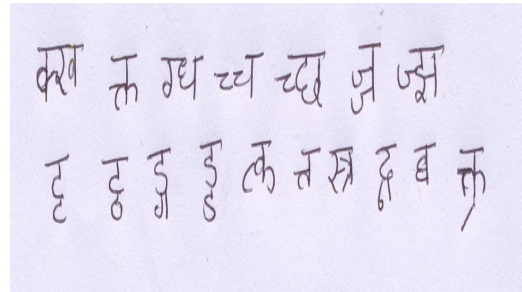 क्ख क्त ग्ध च्च च्छ ज्ज ज्झ
ट्ट ट्ठ ड्ग ड्ड त्क त्त स्त्र द्न ब्ब